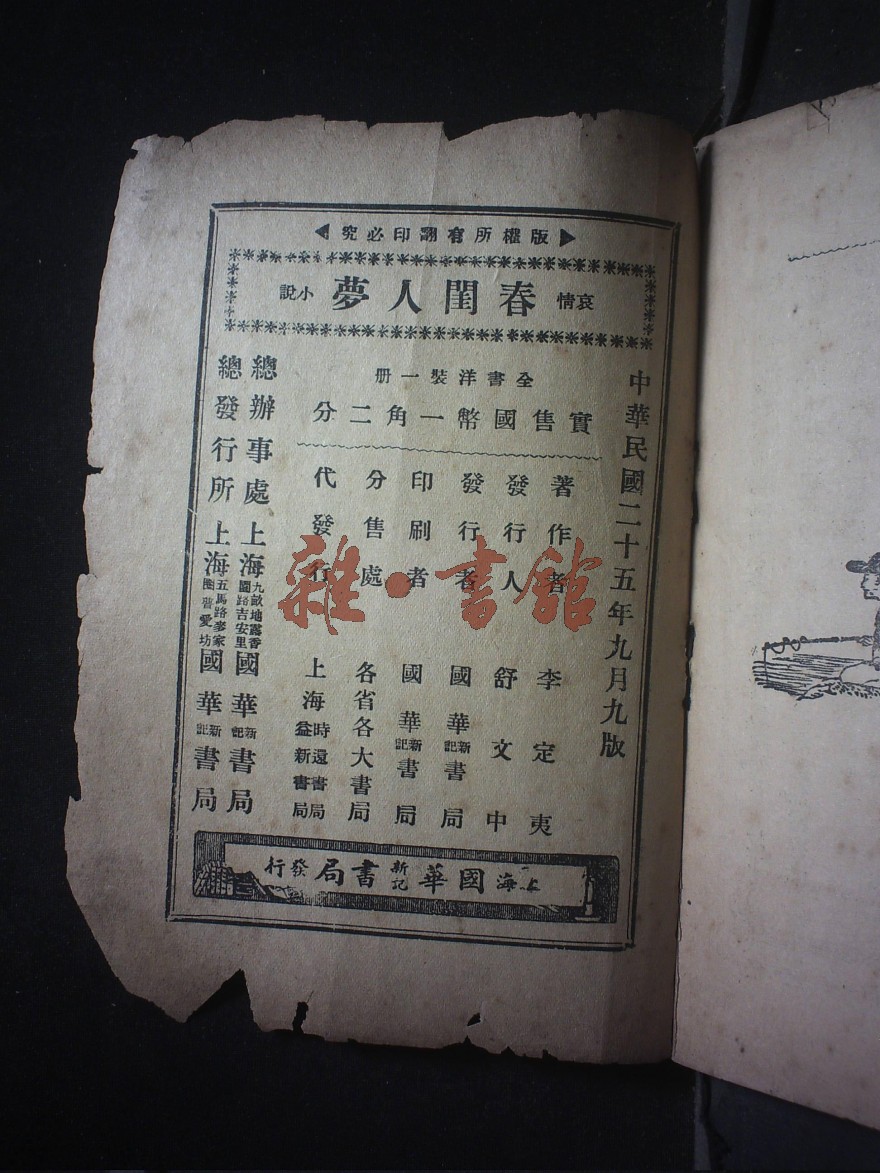 版權所有翻印必究
哀情 春閨人夢 小說
中華民國二十五年九月九版
全書洋裝一册
實售國幣一角二分
著作者 李定夷
發行人 舒文中
發行者 國華新記書局
印刷者 國華新記書局
分售處 各省各大書局
代發行 上海時還書局 益新書局
總辦事處 上海九畝地露香園路吉安里 國華新記書局
總發行所 上海五馬路麥家圈 國華新記書局
上海國華新記書局發行
雜·書館